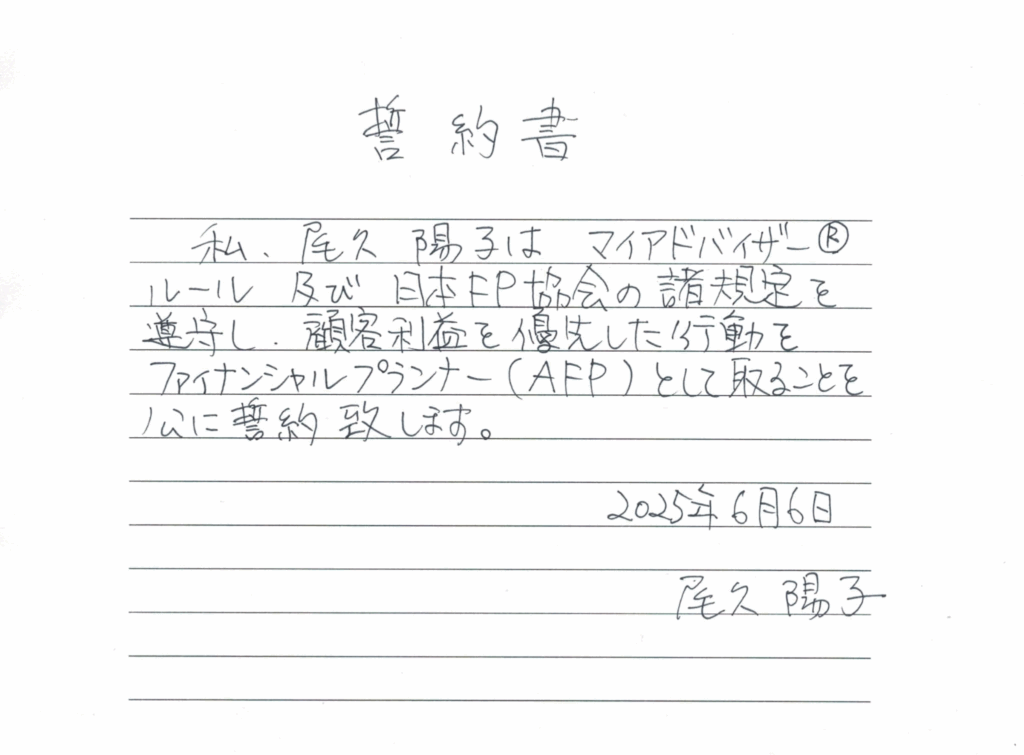 誓約書
私、尾久 陽子は マイアドバイザー®
ルール 及び 日本FP協会の 諸規定を
遵守し、顧客利益を優先した行動を
ファイナンシャルプランナー(AFP)として取ることを
公に誓約致します。
2025年6月6日
尾久 陽子